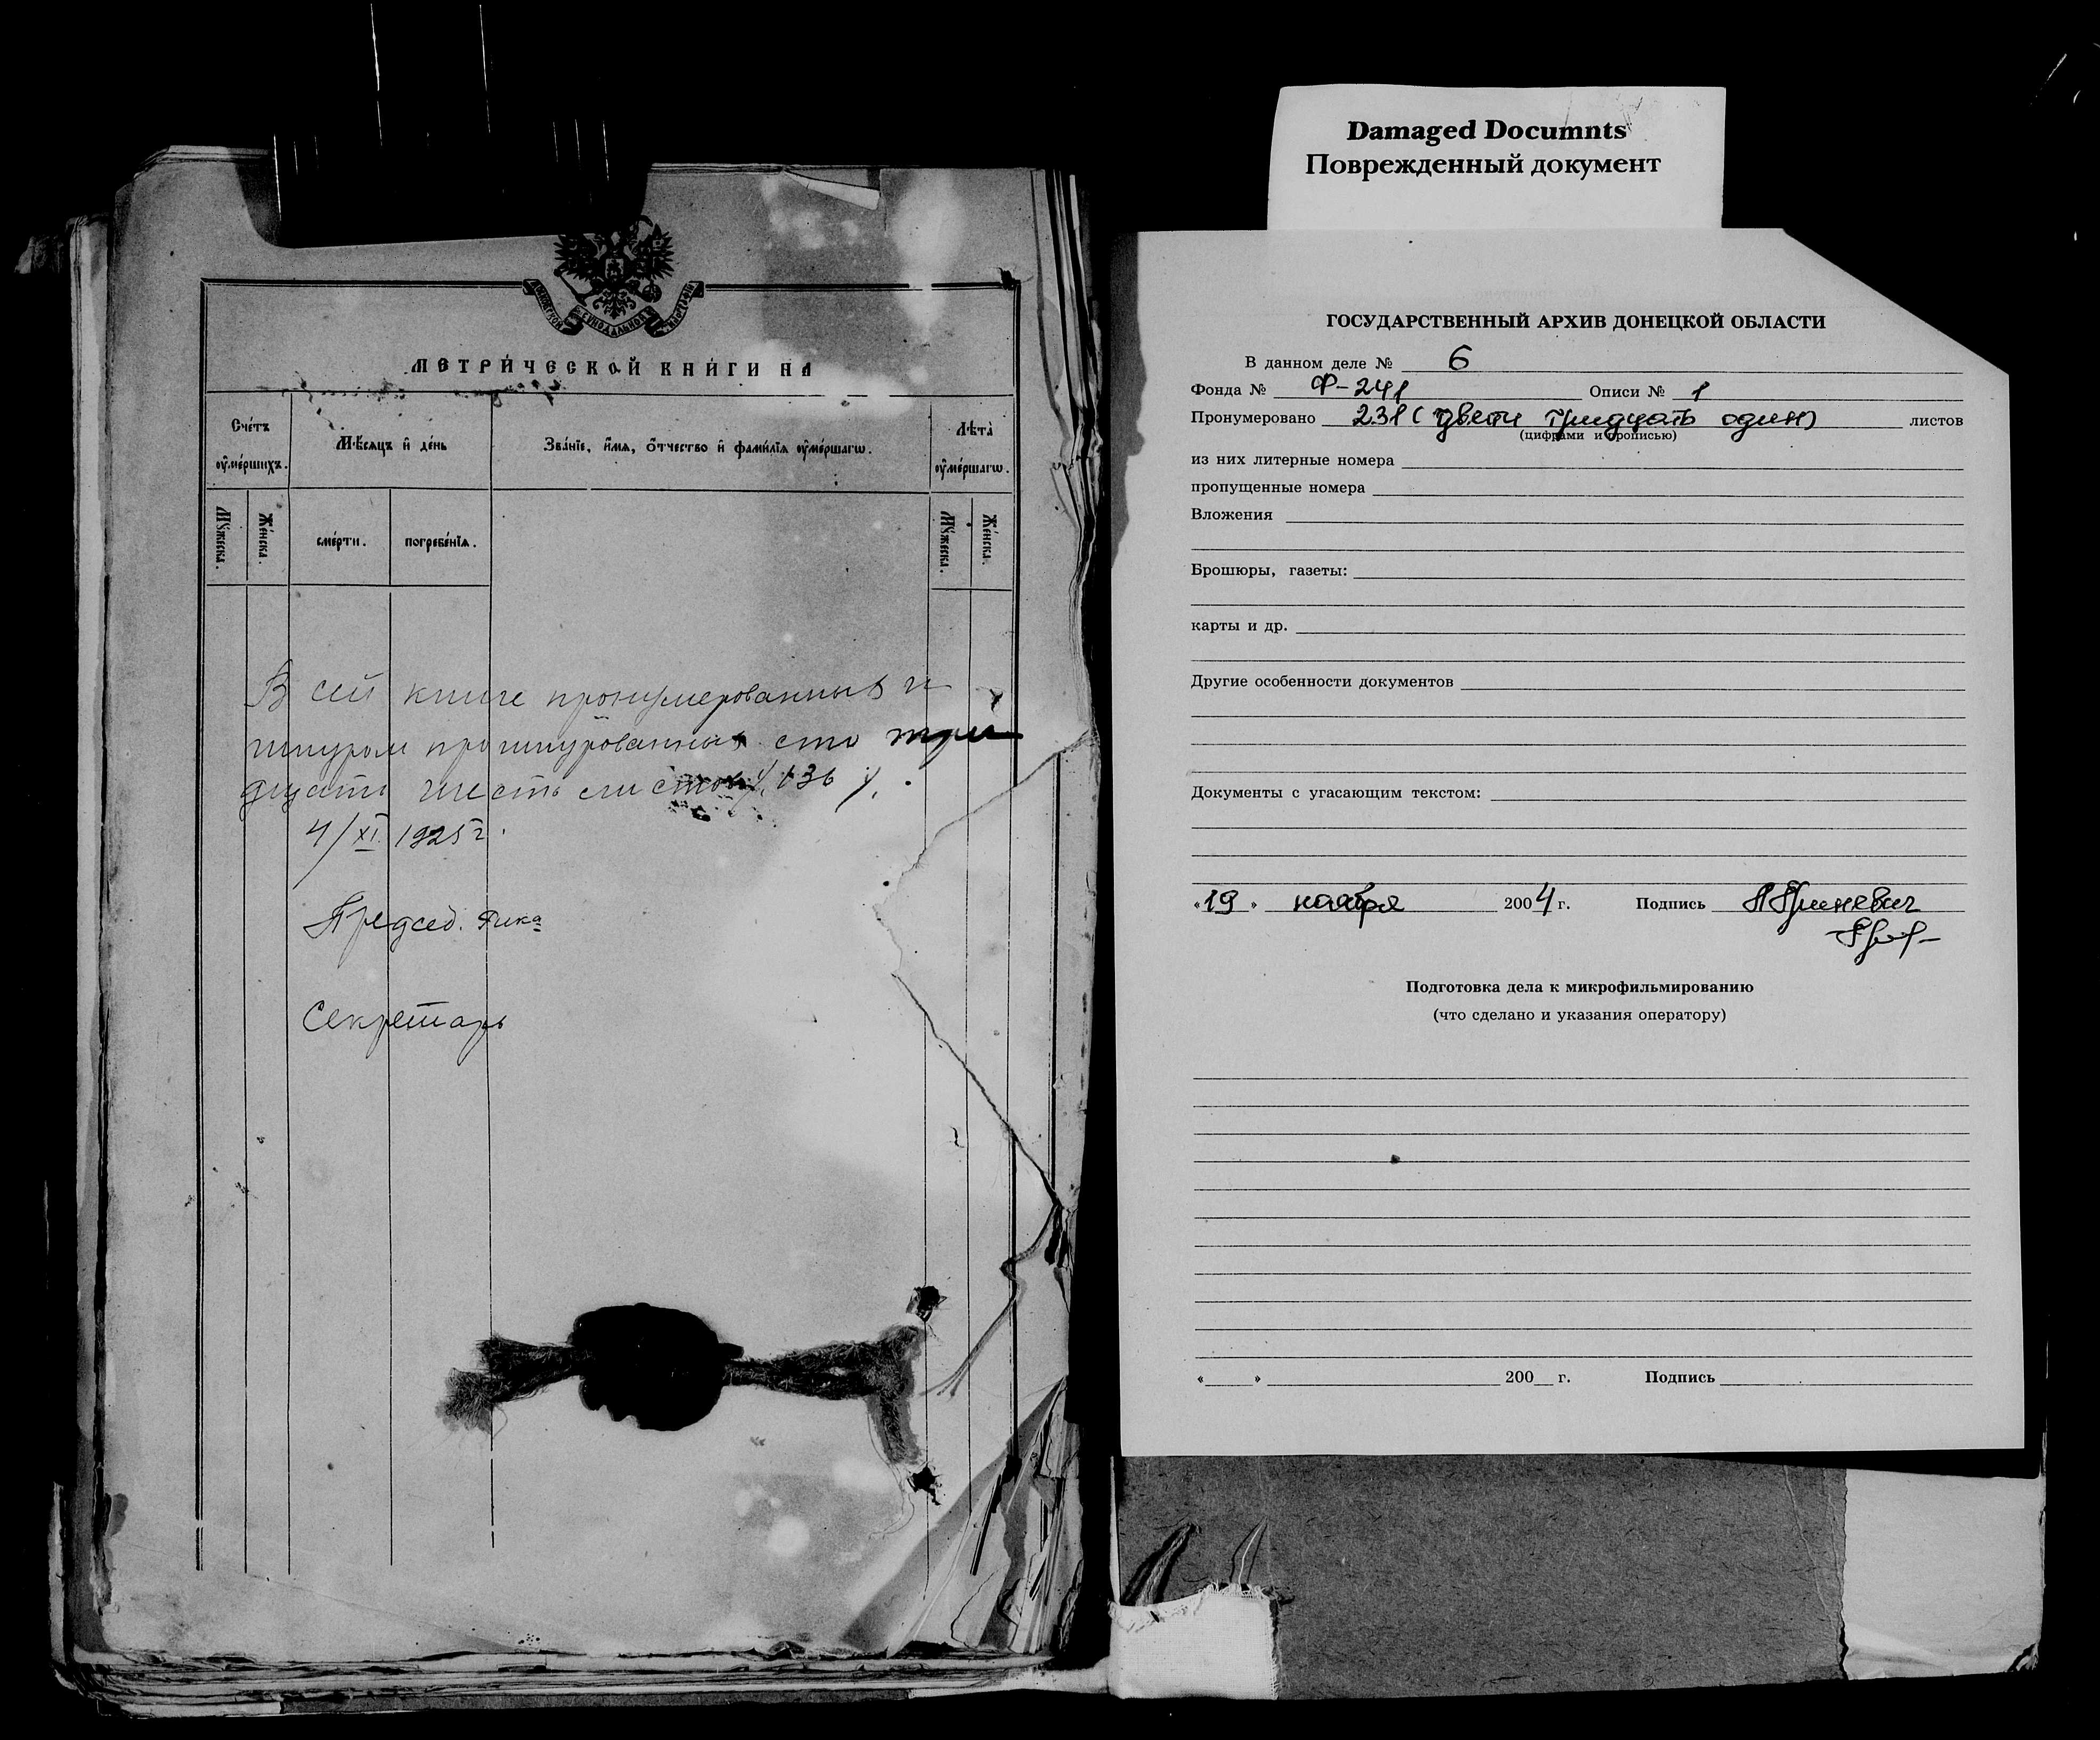 МОСКОВСКОЙ СѴНОДАЛЬНОЙ ТѴПОГРАФІИ
МЕТРИ́ЧЕСКОЙ КНИ́ГИ НА
Сче́тъ ᲂу҆ме́ршихъ.
Мѣ́сяцъ и҆ де́нь
Зва́нїе, и҆́мя, ѻ҆́тчество и҆ фами́лїя ᲂу҆ме́ршагѡ.
Лѣ́та ᲂу҆ме́ршагѡ.
Мꙋ́жеска.
Же́нска.
сме́рти.
погребе́нїя.
Мꙋ́жеска.
Же́нска.
В сей книге пронумерованных и
шнуром прошнурованных сто три
дцать шесть листов /136/.
4/XI 1925 г.
Председ. Рика
Секретарь
Damaged Documnts
Поврежденный документ
ГОСУДАРСТВЕННЫЙ АРХИВ ДОНЕЦКОЙ ОБЛАСТИ
В данном деле № 6
Фонда № Ф-241 Описи № 1
Пронумеровано 231 (двести тридцать один) листов
(цифрами и прописью)
из них литерные номера
пропущенные номера
Вложения
Брошюры, газеты:
карты и др.
Другие особенности документов
Документы с угасающим текстом:
«19» ноября 2004 г. Подпись Л Гриневич
Подготовка дела к микрофильмированию
(что сделано и указания оператору)
« » 200 г. Подпись